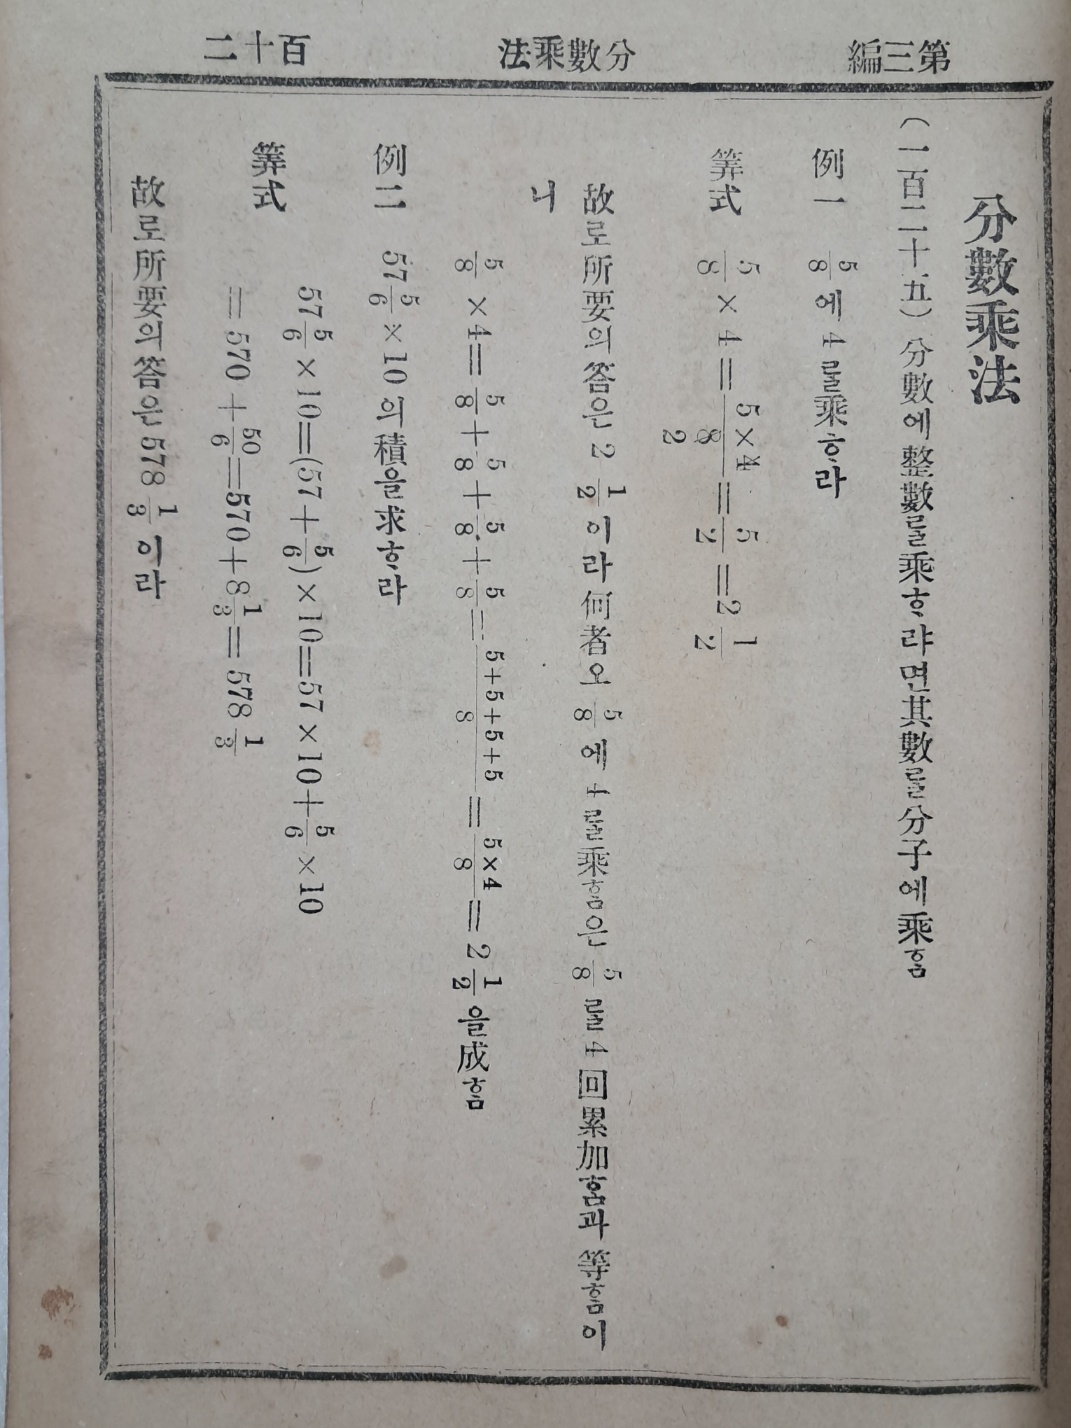 第三編
分數乘法
百十二
分數乘法
(一百二十五) 分數에 整數를 乘ᄒᆞ랴면 其數를 分子에 乘ᄒᆞᆷ
例一 5/8에 4를 乘ᄒᆞ라
筭式 5/8 × 4 = 5×4/8 = 5/2 = 2 1/2
2
故로 所要의 答은 2 1/2이라 何者오 5/8에 4를 乘ᄒᆞᆷ은 5/8를 4回累加ᄒᆞᆷ과 等ᄒᆞᆷ이
니
5/8 × 4 = 5/8 + 5/8 + 5/8 + 5/8 = 5+5+5+5/8 = 5×4/8 = 2 1/2을 成ᄒᆞᆷ
例二 57 5/6 × 10의 積을 求ᄒᆞ라
筭式 57 5/6 × 10 = (57 + 5/6) × 10 = 57 × 10 + 5/6 × 10
= 570 + 50/6 = 570 + 8 1/3 = 578 1/3
故로 所要의 答은 578 1/3이라